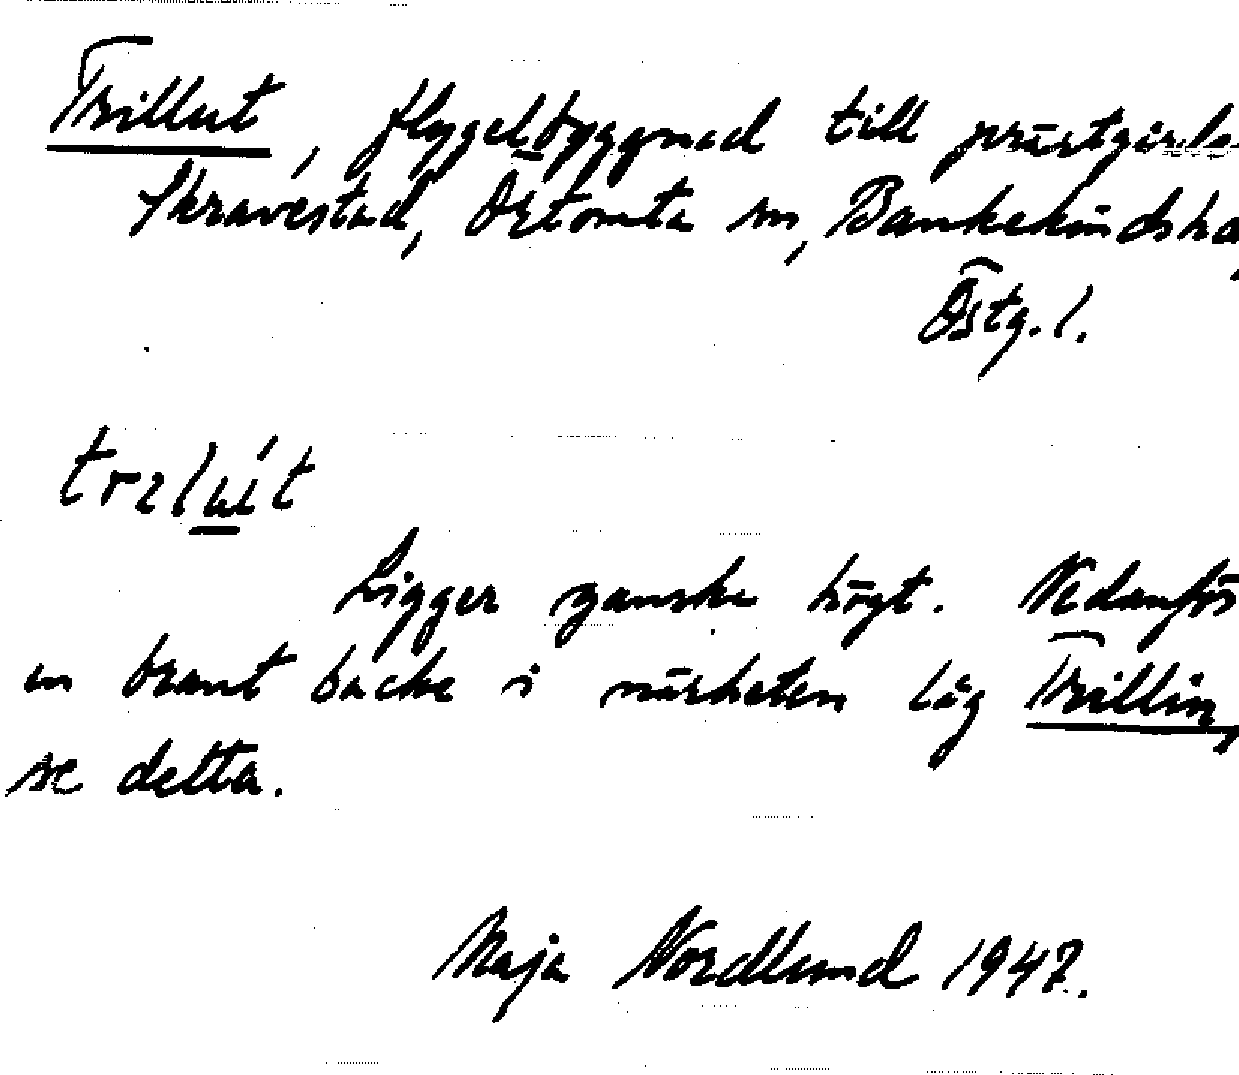 Trillut, flygelbyggnad till prästgårde
Skravestad, Örtomta sn, Bankekinds hd,
Östg. l.
trɩlú̲t
Ligger ganske högt. Nedanför
en brant backe i närheten låg Trillin,
se detta.
Maja Nordlund 1947.